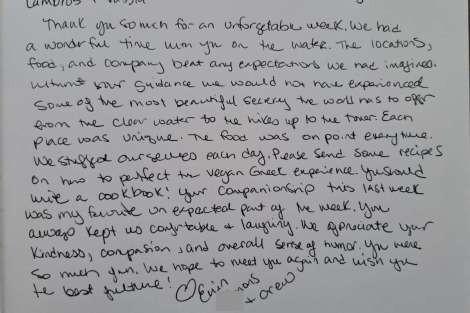 Thank you so much for an unforgetable week. We had
a wonderful time with you on the water. The locations,
food, and company beat any expectations we had imagined.
Without your guidance we would not have experienced
some of the most beautiful scenery the world has to offer
from the clear water to the hikes up to the tower. Each
place was unique. The food was on point everytime.
We stuffed ourselves each day. Please send some recipes
on how to perfect the vegan Greek experience. You should
write a cookbook! Your companionship this last week
was my favorite unexpected part of the week. You
always kept us comfortable & laughing. We apreciate your
kindness, compassion, and overall sense of humor. You were
so much fun. We hope to meet you again and wish you
the best future! ♡ Erin
+ crew